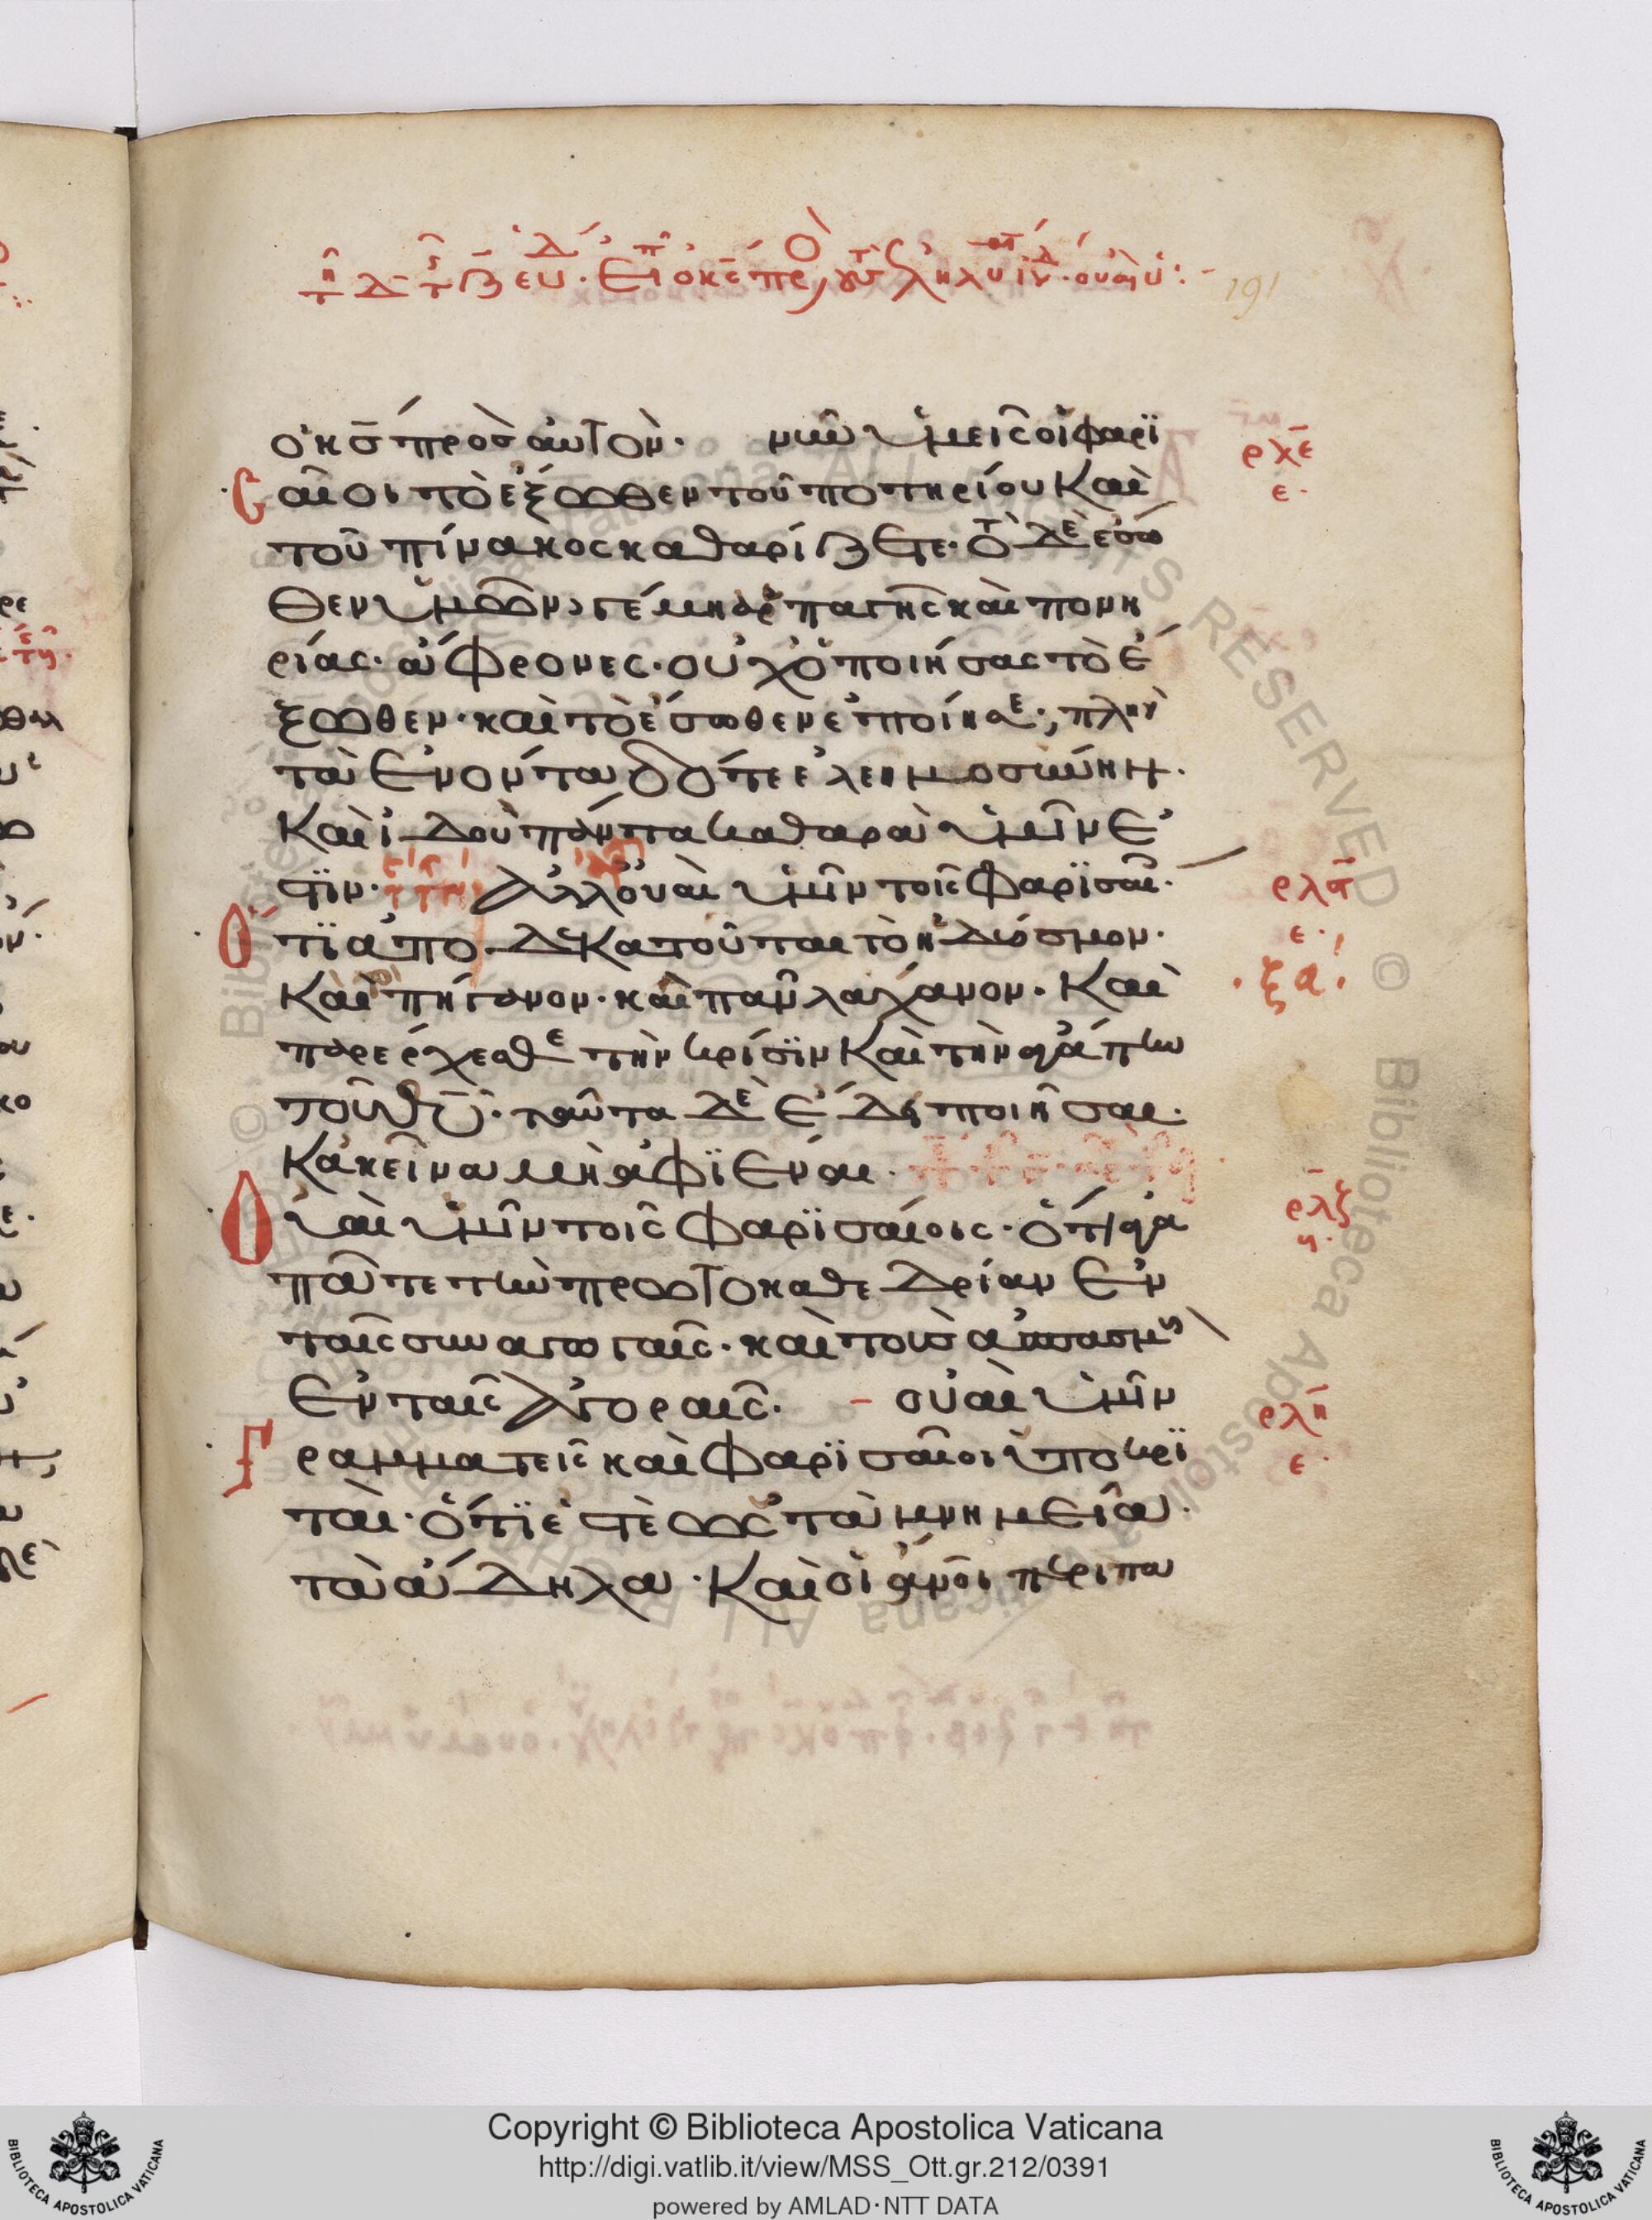 ὁ κ̅ς̅ πρὸς αὐτόν· νῦν ὑμεῖς οἱ φαρϊ
σαῖοι τὸ ἔξωθεν τοῦ ποτηρίου καὶ
τοῦ πίνακος καθαρίζετε· τὸ δὲ ἔσω
θεν ὑμῶν, γέμη ἁρπαγῆς καὶ πονη
ρίας· ἄφρονες· οὐχ ὁ ποιήσας τὸ ἔ
ξωθεν· καὶ τὸ ἔσωθεν ἐποίησε·, πλὴν
τὰ ἐνόντα δότε ἐλεημοσύνην·
καὶ ἰδοὺ πάντα καθαρὰ ὑμῖν ἐ
στϊν· ἀλλ' οὐαὶ ὑμῖν τοῖς φαρϊσαί·
ὅτϊ ἀποδεκατοῦται τὸ ἡδύοσμον·
καὶ πήγανον· καὶ πᾶν λάχανον· καὶ
παρέρχεσθε τὴν κρίσϊν καὶ τὴν ἀγάπην
τοῦ θ̅υ̅· ταῦτα δὲ ἔδει ποιῆσαι·
κἀκεῖνα μὴ ἀφϊέναι·
Οὐαὶ ὑμῖν τοῖς φαρϊσαίοις· ὅτι ἀγα
πᾶτε τὴν πρωτοκαθεδρίαν ἐν
ταῖς συναγωγαῖς· καὶ τοὺς ἀσπασμοὺς
ἐν ταῖς ἀγοραῖς· οὐαὶ ὑμῖν
γραμματεῖς καὶ φαρϊσαῖοι ὑποκρϊ
ταὶ· ὅτϊ ἐστὲ ὡς τὰ μνημεῖα·
τὰ ἄδηλα· καὶ οἱ ἄν̅οι περιπα
ρλϛ̅
ε·
·ξα·
ρλζ̅
ρλη̅
ε·
191
Copyright © Biblioteca Apostolica Vaticana
http://digi.vatlib.it/view/MSS_Ott.gr.212/0391
powered by AMLAD·NTT DATA